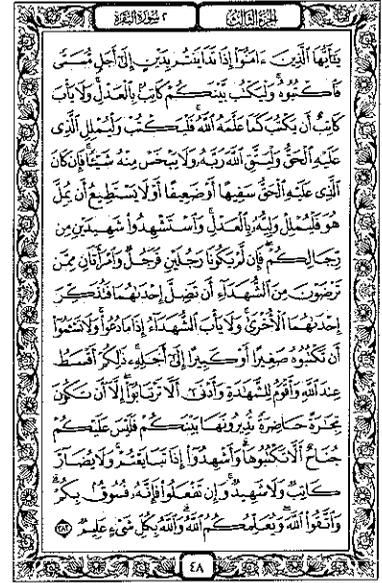 الجزء الثالث
٢ سورة البقرة
يَٰٓأَيُّهَا ٱلَّذِينَ ءَامَنُوٓا۟ إِذَا تَدَايَنتُم بِدَيْنٍ إِلَىٰٓ أَجَلٍ مُّسَمًّى
فَٱكْتُبُوهُ وَلْيَكْتُب بَّيْنَكُمْ كَاتِبٌۢ بِٱلْعَدْلِ وَلَا يَأْبَ
كَاتِبٌ أَن يَكْتُبَ كَمَا عَلَّمَهُ ٱللَّهُ فَلْيَكْتُبْ وَلْيُمْلِلِ ٱلَّذِى
عَلَيْهِ ٱلْحَقُّ وَلْيَتَّقِ ٱللَّهَ رَبَّهُۥ وَلَا يَبْخَسْ مِنْهُ شَيْـًٔا فَإِن كَانَ
ٱلَّذِى عَلَيْهِ ٱلْحَقُّ سَفِيهًا أَوْ ضَعِيفًا أَوْ لَا يَسْتَطِيعُ أَن يُمِلَّ
هُوَ فَلْيُمْلِلْ وَلِيُّهُۥ بِٱلْعَدْلِ وَٱسْتَشْهِدُوا۟ شَهِيدَيْنِ مِن
رِّجَالِكُمْ فَإِن لَّمْ يَكُونَا رَجُلَيْنِ فَرَجُلٌ وَٱمْرَأَتَانِ مِمَّن
تَرْضَوْنَ مِنَ ٱلشُّهَدَآءِ أَن تَضِلَّ إِحْدَىٰهُمَا فَتُذَكِّرَ
إِحْدَىٰهُمَا ٱلْأُخْرَىٰ وَلَا يَأْبَ ٱلشُّهَدَآءُ إِذَا مَا دُعُوا۟ وَلَا تَسْـَٔمُوٓا۟
أَن تَكْتُبُوهُ صَغِيرًا أَوْ كَبِيرًا إِلَىٰٓ أَجَلِهِۦ ذَٰلِكُمْ أَقْسَطُ
عِندَ ٱللَّهِ وَأَقْوَمُ لِلشَّهَٰدَةِ وَأَدْنَىٰٓ أَلَّا تَرْتَابُوٓا۟ إِلَّآ أَن تَكُونَ
تِجَٰرَةً حَاضِرَةً تُدِيرُونَهَا بَيْنَكُمْ فَلَيْسَ عَلَيْكُمْ
جُنَاحٌ أَلَّا تَكْتُبُوهَا وَأَشْهِدُوٓا۟ إِذَا تَبَايَعْتُمْ وَلَا يُضَآرَّ
كَاتِبٌ وَلَا شَهِيدٌ وَإِن تَفْعَلُوا۟ فَإِنَّهُۥ فُسُوقٌۢ بِكُمْ
وَٱتَّقُوا۟ ٱللَّهَ وَيُعَلِّمُكُمُ ٱللَّهُ وَٱللَّهُ بِكُلِّ شَىْءٍ عَلِيمٌ ٢٨٢
٤٨